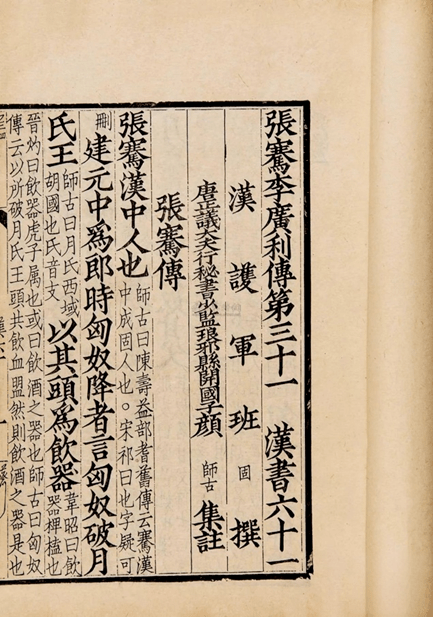 張騫李廣利傳第三十一 漢書六十一
漢護軍班固撰
唐正議大夫行秘書少監琅邪縣開國子顏師古集註
張騫傳
張騫漢中人也師古曰陳壽益部耆舊傳云騫漢中成固人也。宋祁曰也字疑可
刪建元中爲郎時匈奴降者言匈奴破月
氏王師古曰月氏西域胡國也氏音支以其頭爲飲器韋昭曰飲器椑榼也
晉灼曰飲器虎子屬也或曰飲酒之器也師古曰匈奴傳云以所破月氏王頭共飲血盟然則飲酒之器是也